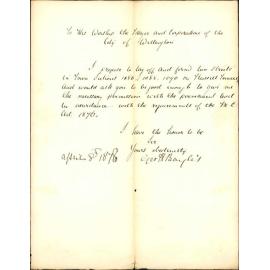 To His Worship the Mayor and Corporation of the
City of Wellington
I propose to lay off and form two Streets
in Town Sections 1086, 1088, 1090 on
and would ask you to be good enough to give me
the necessary permission with the permanent level
in accordance with the requirements of the
Act 1876.
I have the honor to be
Sir
Yours obediently
April 1878